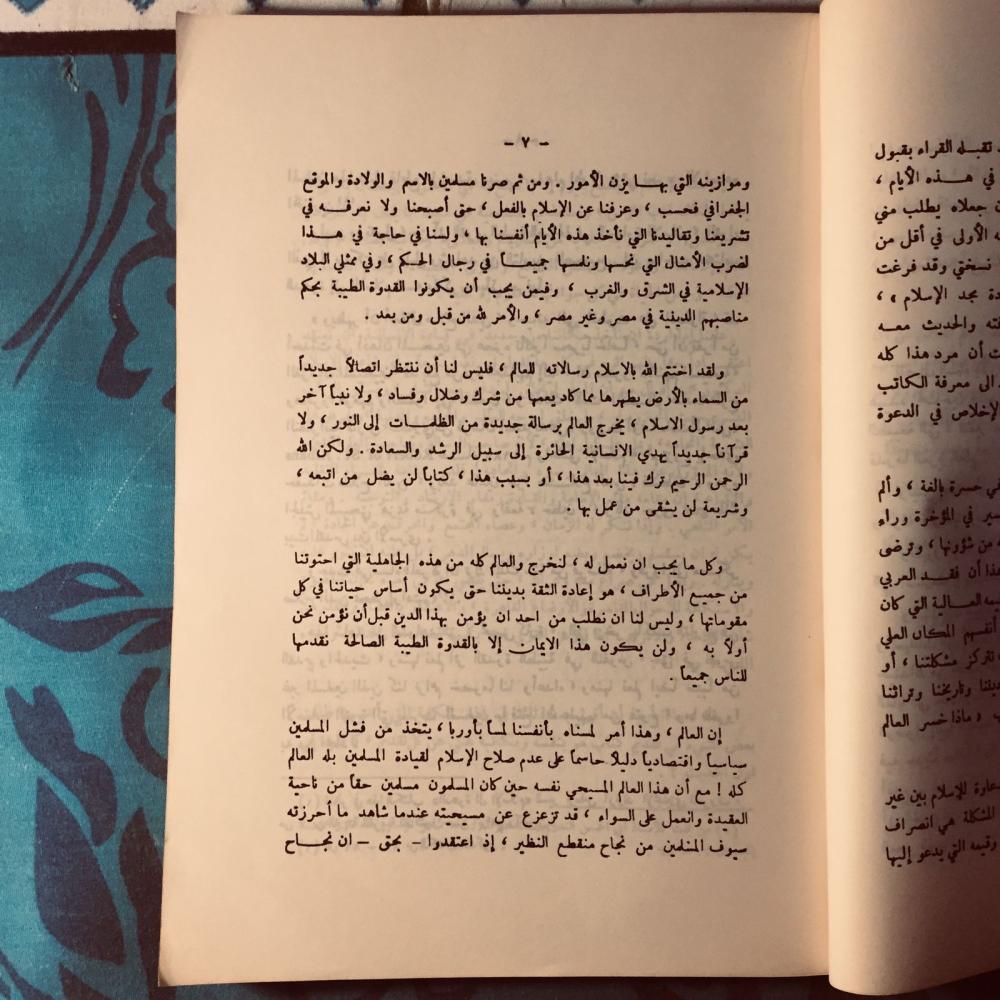 ـ ٧ ـ
وموازينه التي بهـا يزن الأمور . ومن ثم صرنا مسلمين بالاسم والولادة والموقع
الجغرافي فحسب ، وعزفنا عن الإسلام بالفعل ، حتى أصبحنا ولا نعرفـه في
تشريعنا وتقاليدنا التي نأخذ هذه الأيام أنفسنا بها ، ولسنا في حاجة في هـذا
لضرب الأمثال التي نحسها ونلمسها جميعـاً في رجال الحـكم ، وفي ممثلي البلاد
الإسلامية في الشرق والغرب ، وفيمن يجب أن يكونوا القدوة الطيبة بحكم
مناصبهم الدينية في مصر وغير مصر ، والأمر لله من قبل ومن بعد .
ولقد اختتم الله بالاسلام رسالاته للعالم ، فليس لنا أن ننتظر اتصالاً جديداً
من السماء بالأرض يطهرها مما كاد يعمها من شرك وضلال وفساد ، ولا نبياً آخر
بعد رسول الاسلام ، يخرج العالم برسالة جديدة من الظلمـات إلى النور ، ولا
قرآناً جديداً يهدي الانسانية الحائرة إلى سبيل الرشد والسعادة . ولكن الله
الرحمن الرحيم ترك فينا بعد هذا ، أو بسبب هذا ، كتاباً لن يضل من اتبعه ،
وشريعة لن يشقى من عمل بها .
وكل ما يجب ان نعمل له ، لنخرج والعالم كله من هذه الجاهلية التي احتوتنا
من جميع الأطراف ، هو إعادة الثقة بديننا حتى يكون أساس حياتنا في كل
مقوماتها ، وليس لنا ان نطلب من احد ان يؤمن بهذا الدين قبل أن نؤمن نحن
أولاً به ، ولن يكون هذا الايمان إلا بالقدوة الطيبة الصالحة نقدمها
للناس جميعاً .
إن العالم ، وهذا أمر لمسناه بأنفسنا لمساً بأوربا ، يتخذ من فشل المسلمين
سياسياً واقتصادياً دليلاً حاسماً على عدم صلاح الإسلام لقيادة المسلمين بله العالم
كله ! مع أن هذا العالم المسيحي نفسه حين كان المسلمون مسلمين حقاً من ناحية
العقيدة والعمل على السواء ، قد تزعزع عن مسيحيته عندما شاهد ما أحرزته
سيوف المسلمين من نجاح منقطع النظير ، إذ اعتقدوا ـ بحق ـ ان نجـاح
تقبله القراء بقبول
في هـذه الأيام ،
جعلاه يطلب مني
الأولى في أقل من
نسختي وقد فرغت
مجد الإسلام » ،
والحديث معـه
أن مرد هذا كله
الى معرفة الكاتب
الإخلاص في الدعوة
في حسرة بالغة ، وألم
في المؤخرة وراء
من شؤونها ، وترضى
أن فقـد العربي
العـالية التي كان
أنفسهم المكان العلي
تتركز مشكلتنا ، أو
وتاريخنا وتراثنا
« ماذا خسر العالم
للإسلام بين غير
المشكلة هي انصراف
وقيمه التي يدعو إليها